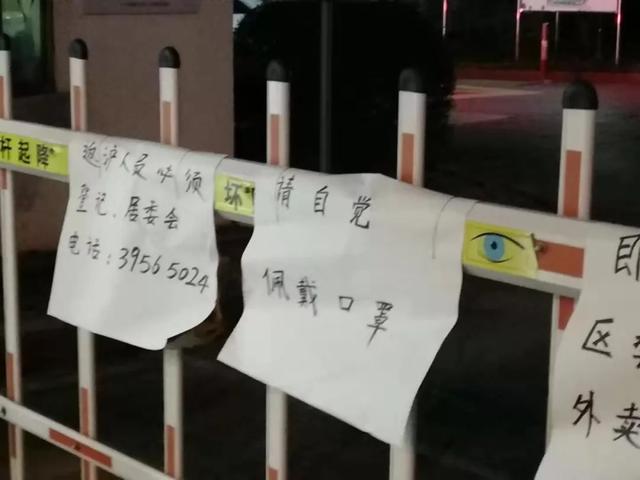 杆起降
返沪人员必须
登记、居委会
电话：39565024
坏
请自觉
佩戴口罩
即
区
外卖